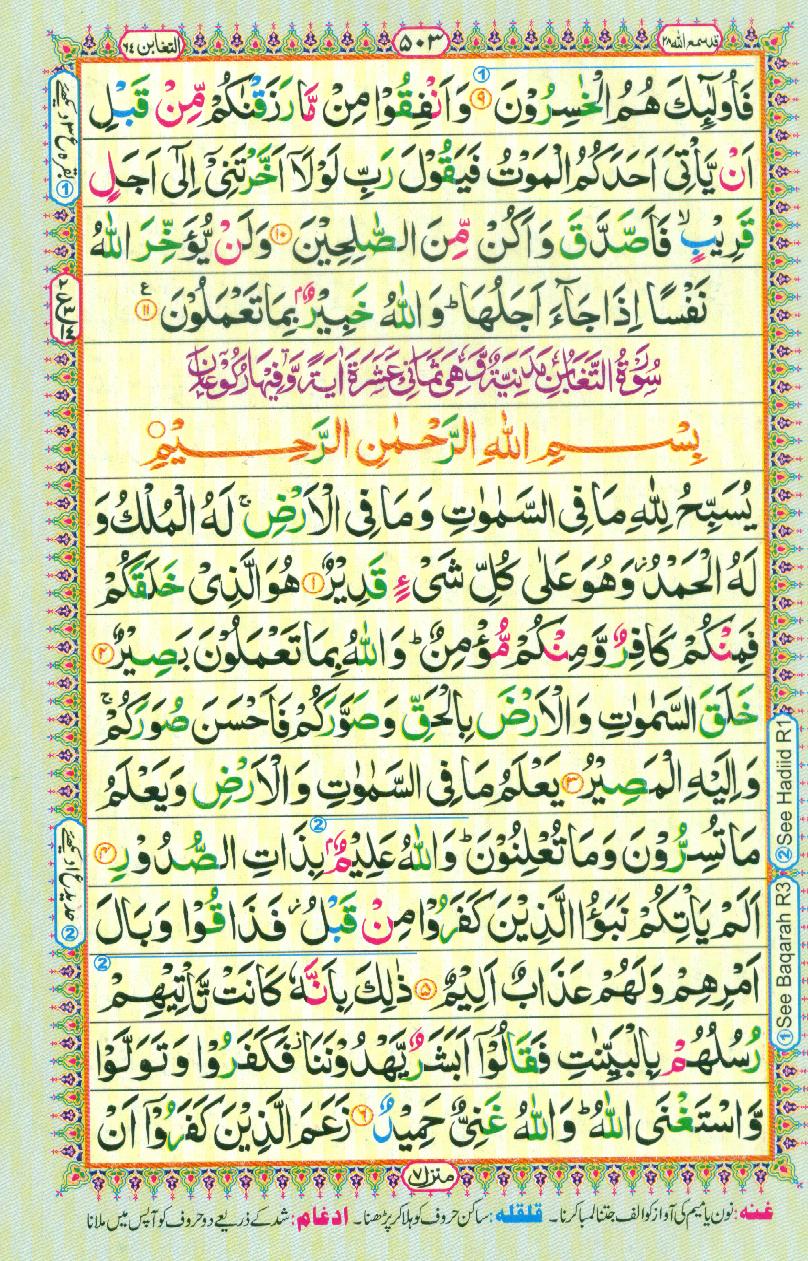 التغابن ٦٤
٥٠٣
قد سمع الله ٢٨
فَاُولٰٓئِكَ هُمُ الْخٰسِرُوْنَ ۹ وَاَنْفِقُوْا مِنْ مَّا رَزَقْنٰكُمْ مِّنْ قَبْلِ
اَنْ يَّاْتِىَ اَحَدَكُمُ الْمَوْتُ فَيَقُوْلَ رَبِّ لَوْلَاۤ اَخَّرْتَنِىْۤ اِلٰٓى اَجَلٍ
قَرِيْبٍ ۙ فَاَصَّدَّقَ وَاَكُنْ مِّنَ الصّٰلِحِيْنَ ۱۰ وَلَنْ يُّؤَخِّرَ اللّٰهُ
نَفْسًا اِذَا جَآءَ اَجَلُهَا ؕ وَاللّٰهُ خَبِيْرٌۢ بِمَا تَعْمَلُوْنَ ۱۱ ع
سُوْرَةُ التَّغَابُنِ مَدَنِيَّةٌ وَّهِىَ ثَمَانِىَ عَشَرَةَ اٰيَةً وَّفِيْهَا رُكُوْعَانِ
بِسْمِ اللّٰهِ الرَّحْمٰنِ الرَّحِيْمِ
يُسَبِّحُ لِلّٰهِ مَا فِى السَّمٰوٰتِ وَمَا فِى الْاَرْضِ ۚ لَهُ الْمُلْكُ وَ
لَهُ الْحَمْدُ ؗ وَهُوَ عَلٰى كُلِّ شَىْءٍ قَدِيْرٌ ۱ هُوَ الَّذِىْ خَلَقَكُمْ
فَمِنْكُمْ كَافِرٌ وَّمِنْكُمْ مُّؤْمِنٌ ؕ وَاللّٰهُ بِمَا تَعْمَلُوْنَ بَصِيْرٌ ۲
خَلَقَ السَّمٰوٰتِ وَالْاَرْضَ بِالْحَقِّ وَصَوَّرَكُمْ فَاَحْسَنَ صُوَرَكُمْ ۚ
وَاِلَيْهِ الْمَصِيْرُ ۳ يَعْلَمُ مَا فِى السَّمٰوٰتِ وَالْاَرْضِ وَيَعْلَمُ
مَا تُسِرُّوْنَ وَمَا تُعْلِنُوْنَ ؕ وَاللّٰهُ عَلِيْمٌۢ بِذَاتِ الصُّدُوْرِ ۴
اَلَمْ يَاْتِكُمْ نَبَؤُا الَّذِيْنَ كَفَرُوْا مِنْ قَبْلُ ؗ فَذَاقُوْا وَبَالَ
اَمْرِهِمْ وَلَهُمْ عَذَابٌ اَلِيْمٌ ۵ ذٰلِكَ بِاَنَّهٗ كَانَتْ تَّاْتِيْهِمْ
رُسُلُهُمْ بِالْبَيِّنٰتِ فَقَالُوْۤا اَبَشَرٌ يَّهْدُوْنَنَا ؗ فَكَفَرُوْا وَتَوَلَّوْا
وَّاسْتَغْنَى اللّٰهُ ؕ وَاللّٰهُ غَنِىٌّ حَمِيْدٌ ۶ زَعَمَ الَّذِيْنَ كَفَرُوْۤا اَنْ
منزل ۷
غنہ: نون یا میم کی آواز کو الف جتنا لمبا کرنا۔ قلقلہ: ساکن حروف کو ہلا کر پڑھنا۔ ادغام: شد کے ذریعے دو حروف کو آپس میں ملانا
② See Hadiid R1
① See Baqarah R3
② حدید ع ۱ دیکھیے